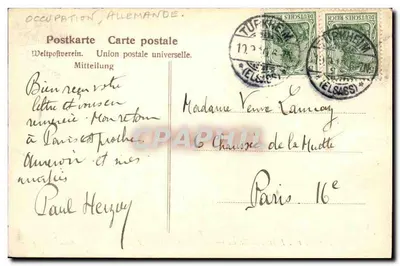 OCCUPATION, ALLEMANDE.
Postkarte Carte postale
Weltpostverein. Union postale universelle.
Mitteilung
DEUTSCHES REICH
DEUTSCHES REICH
TÜRKHEIM
(ELSASS)
TÜRKHEIM
(ELSASS)
Bien reçu votre
lettre et vous en
remercie. Mon retour
à Paris est proche.
et mes
amitiés
Paul
Madame Veuve Launay
6 Chaussée de la Muette
Paris 16e